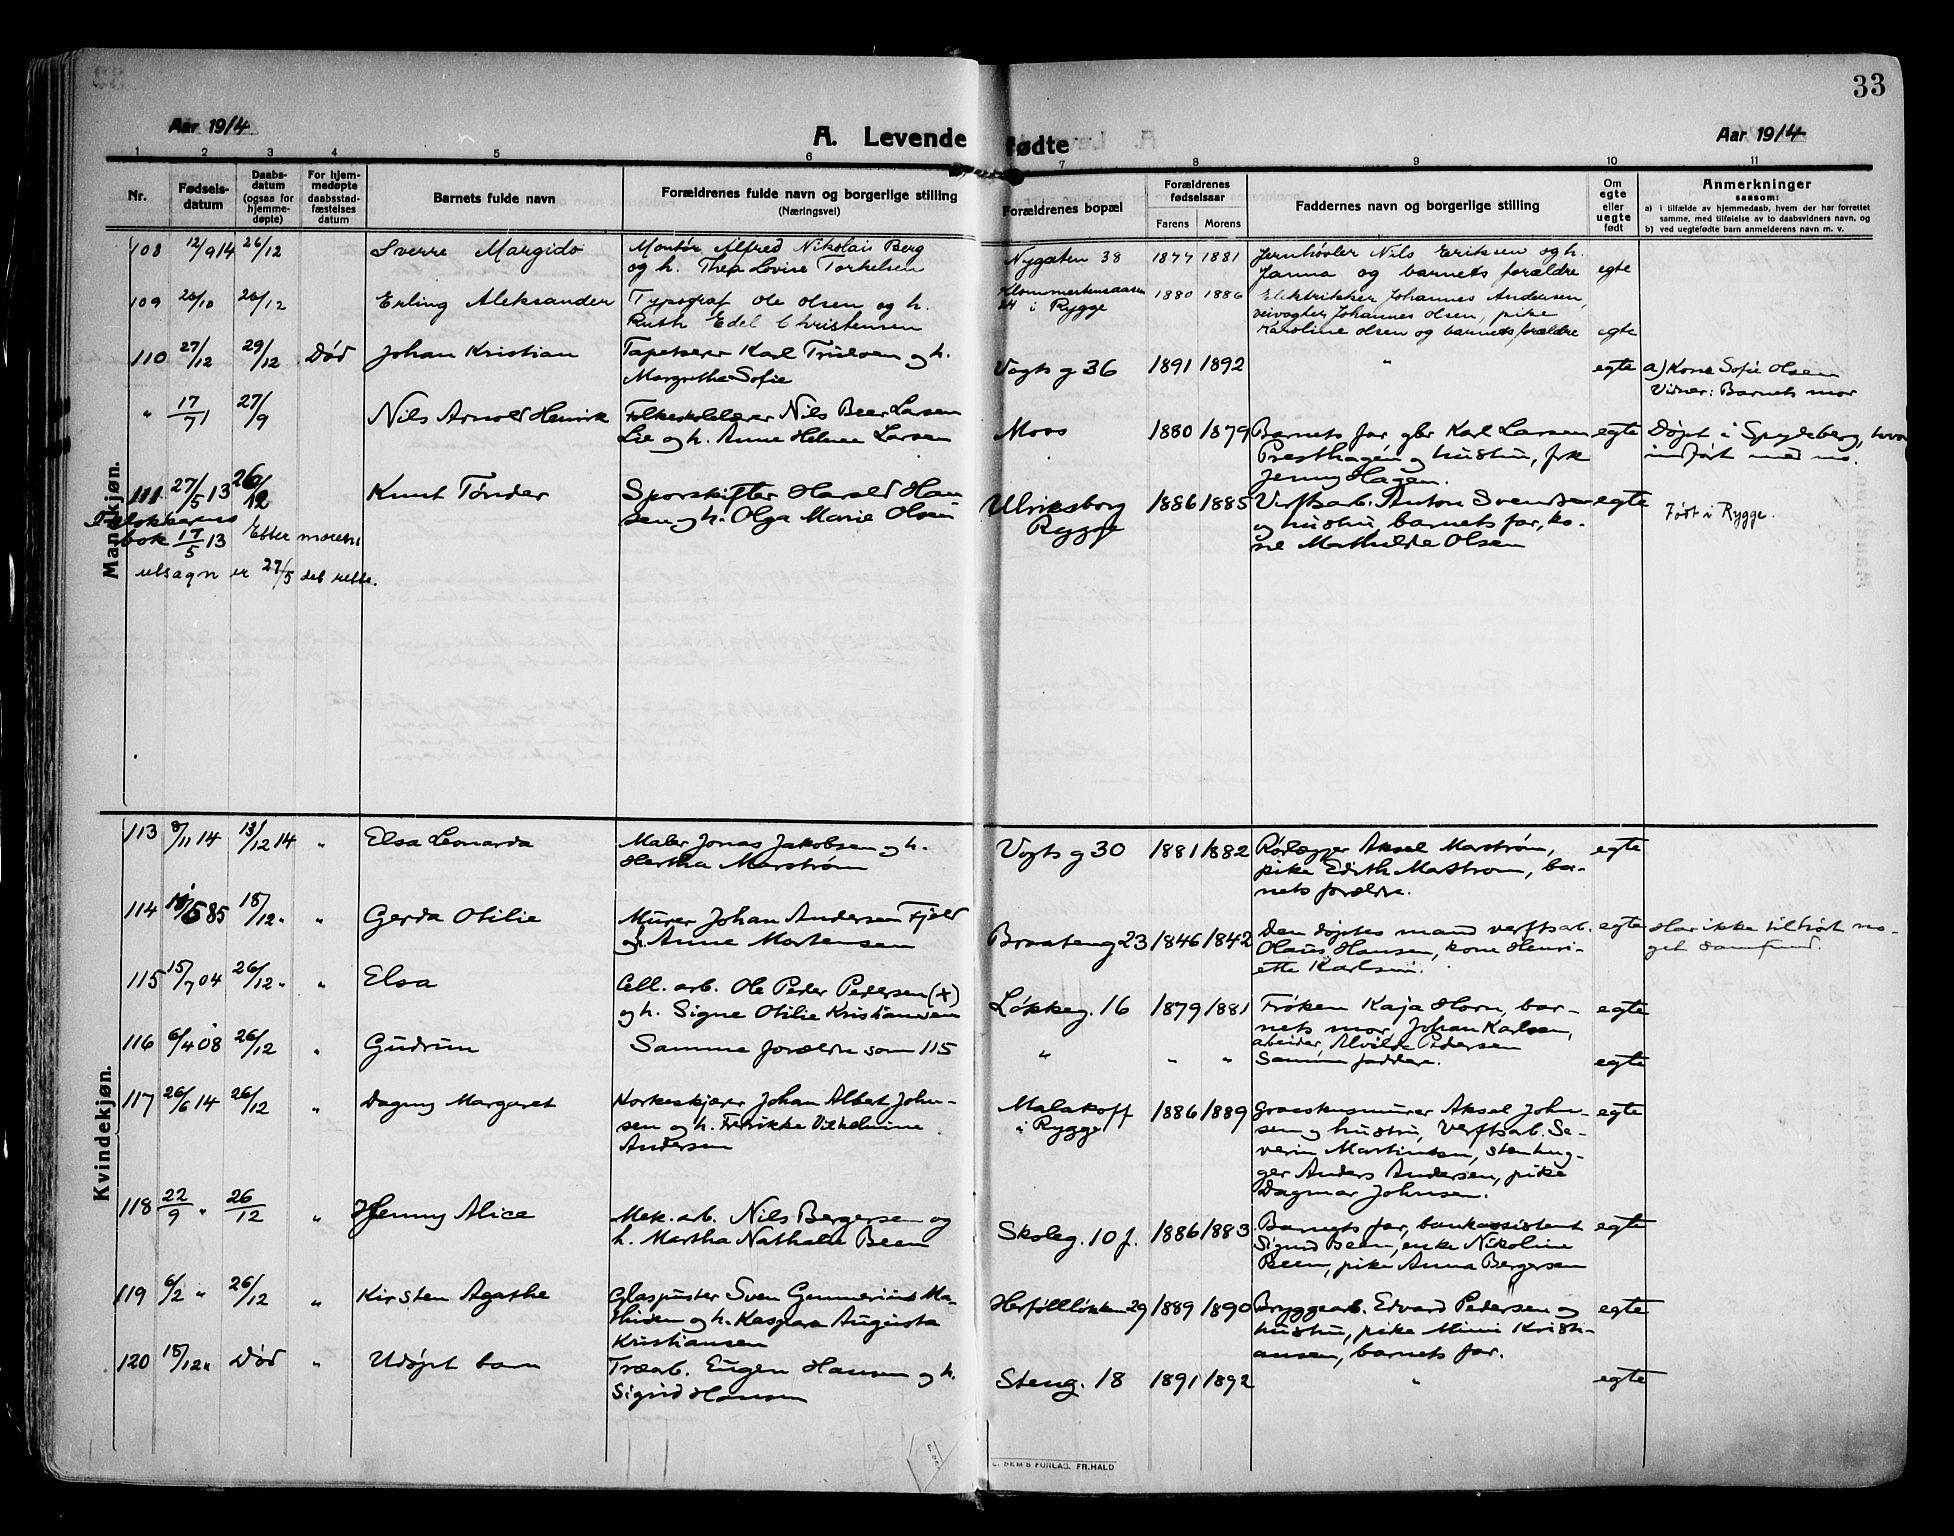 33
Aar 1914
A. Levende fødte
Aar 1914
1 2 3 4 5 6 7 8 9 10 11
Nr.
Fødsels-
datum
Daabs-
datum
(ogsaa for
hjemme-
døpte)
For hjem-
medøpte
daabsstad-
fæstelses
datum
Barnets fulde navn
Forældrenes fulde navn og borgerlige stilling
(Næringsvei)
Forældrenes bopæl
Forældrenes
fødselsaar
Farens Morens
Faddernes navn og borgerlige stilling
Om
egte
eller
uegte
født
Anmerkninger
saasom:
a) i tilfælde av hjemmedaab, hvem der har forrettet
samme, med tilføielse av to daabsvidners navn, og
b) ved uegtefødte barn anmelderens navn m. v.
Mandkjøn.
108 12/9 14 26/12 Sverre Margido
Montør Alfred Nikolais Berg
og h. Thea Lovise Torkelsen
Nygaten 38 1877 1881
Jernhøvler Nils Eriksen og h.
Janna og barnets forældre egte
109 20/10 26/12 Erling Aleksander
Typograf Ole Olsen og h.
Ruth Edel Christensen
24 i Rygge 1880 1886
Elektrikker Johannes Andersen,
veivogter Johannes Olsen, pike
Karoline Olsen og barnets forældre egte
110 27/12 29/12 Død Johan Kristian
Tapetserer Karl Truelsen og h.
Margrethe Sofie
Vogts g 36 1891 1892 " egte
a) Kone Sofie Olsen
Vidner: Barnets mor
" 17/7 27/9 Nils Arnold Henrik
Folkeskolelærer Nils Beer Larsen
Lie og h. Anne Helene Larsen
Moss 1880 1879
Barnets far, gbr Karl Larsen
Presthagen og hustru, frk
Jenny Hagen.
egte
Døpt i Spydeberg, hvor
indført med no.
111 27/5 13 26/12 Knut Tønder
Sporskifter Harald Han
sen og h. Olga Marie Olsen
Ulriksborg
Rygge
1886 1885
Verftsarb. Anton Svendsen
og hustru, barnets far, ko-
ne Mathilde Olsen
egte
Født i Rygge.
I klokkerens
bok 17/5 13 Efter morens
utsagn er 27/5 det rette.
Kvindekjøn.
113 8/11 14 13/12 14 " Elsa Leonarda
Maler Jonas Jakobsen og h.
Hertha Marstrøm
Vogts g 30 1881 1882
Rørlægger Aksel Marstrøm,
pike Edith Mastrom, bar-
nets forældre.
egte
114 85 18/12 " " Gerda Otilie
Murer Johan Andersen Fjeld
og h. Anne Mortensen
Braateng 23 1846 1842
Den døptes mand verftsarb.
Olaus Hansen, kone Henri-
ette Karlsen.
egte
Har ikke tilhørt no-
get samfund.
115 15/7 04 26/12 " " Elsa
Cell. arb. Ole Peder Pedersen (+)
og h. Signe Otilie Kristiansen
Løkkeg. 16 1879 1881
Frøken Kaja Horn, bar-
nets mor, Johan Karlsen,
arbeider Alvilde Pedersen
egte
116 6/4 08 26/12 " Gudrun
Samme forældre som 115
" " "
Samme faddere. egte
117 26/6 14 26/12 " Dagny Margaret
Korkeskjærer Johan Albert John-
sen og h. Fredrikke Vilhelmine
Andersen
Malakoff
i Rygge
1886 1889
Graastensmurer Aksel John-
sen og hustru, Verftsarb. Se-
verin Martinsen, stenhug-
ger Anders Andersen, pike
Dagmar Johnsen.
egte
118 22/9 " 26/12 " Jenny Alice
Mek. arb. Nils Bergersen og
h. Martha Nathalie Been
Skoleg. 10 f. 1886 1883
Barnets far, bankassistent
Sigurd Been, enke Nikoline
Been, pike Anna Bergersen
egte
119 6/2 " 26/12 " Kirsten Agathe
Glaspuster Sven Gunnerius Ma-
thisen og h. Kaspara Augusta
Kristiansen
Herføllløkken 29 1889 1890
Bryggearb. Edvard Pedersen og
hustru, pike Mimi Kristi-
ansen, barnets far.
egte
120 18/12 " Død " Udøpt barn
Træarb. Eugen Hansen og h.
Sigrid Hansen
Steng. 18 1891 1892 " egte
SEM'S FORLAG. FR.HALD